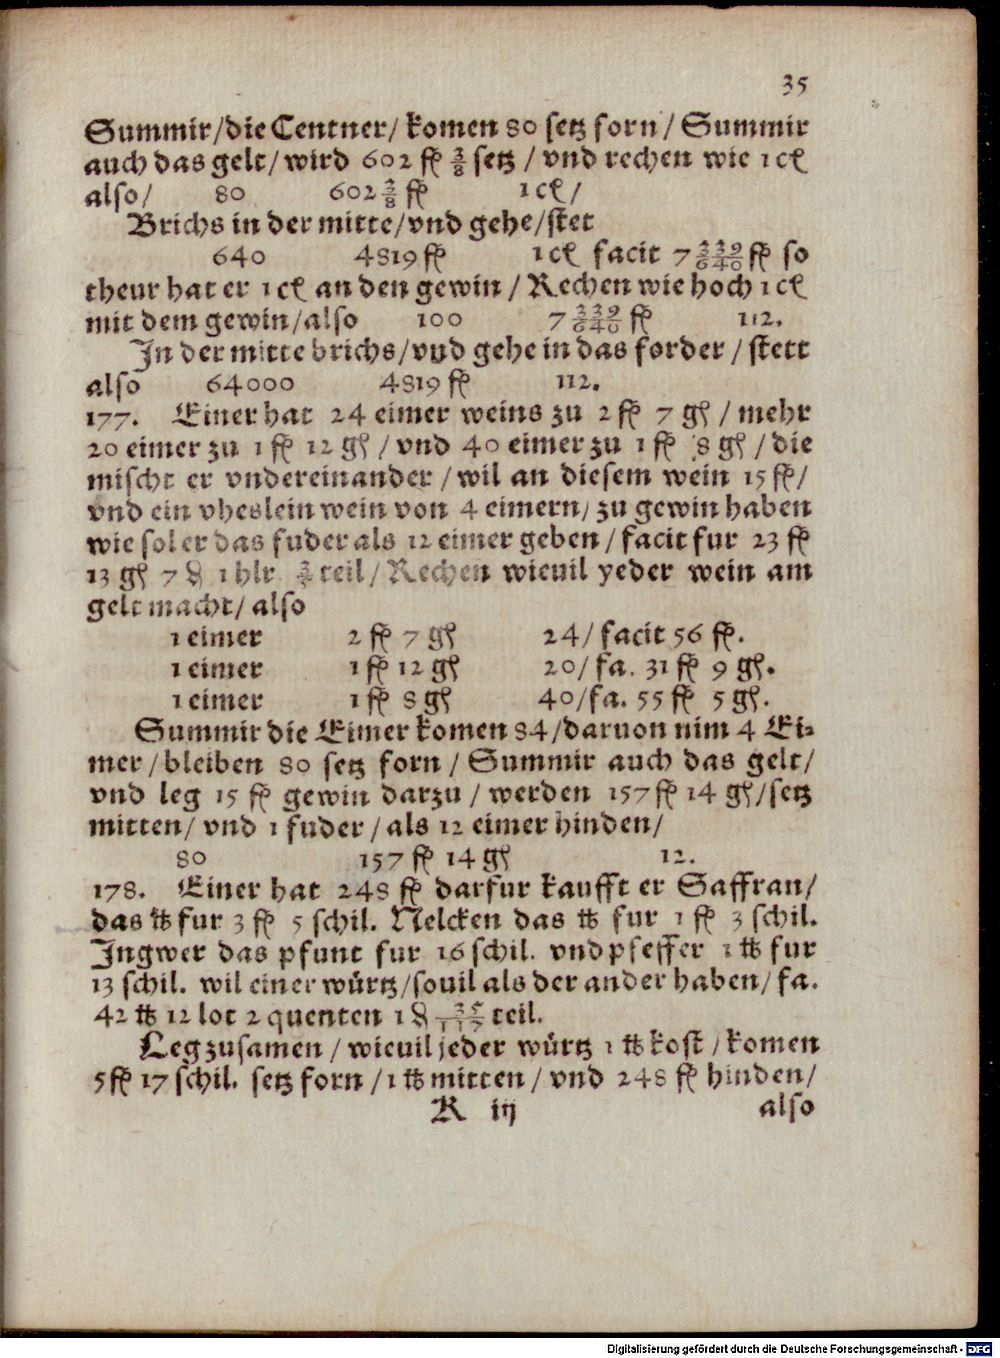 35
Summir/die Centner/ komen 80 setz forn/ Summir
auch das gelt/ wird 602 fl 3/8 setz/ vnd rechen wie 1 ct
also/ 80 602 3/8 fl 1 ct/
Brichs in der mitte/vnd gehe/stet
640 4819 fl 1 ct facit 7 339/640 fl so
theur hat er 1 ct an den gewin/ Rechen wie hoch 1 ct
mit dem gewin/also 100 7 339/640 fl 112.
In der mitte brichs/vnd gehe in das forder/ stett
also 64000 4819 fl 112.
177. Einer hat 24 eimer weins zu 2 fl 7 gß/ mehr
20 eimer zu 1 fl 12 gß/ vnd 40 eimer zu 1 fl 8 gß/ die
mischt er vndereinander/ wil an diesem wein 15 fl/
vnd ein vheslein wein von 4 eimern/ zu gewin haben
wie sol er das fuder als 12 eimer geben/ facit fur 23 fl
13 gß 7 ₰ 1 hlr teil/ Rechen wieuil yeder wein am
gelt macht/ also
1 eimer 2 fl 7 gß 24/ facit 56 fl.
1 eimer 1 fl 12 gß 20/ fa. 31 fl 9 gß.
1 eimer 1 fl 8 gß 40/fa. 55 fl 5 gß.
Summir die Eimer komen 84/daruon nim 4 Ei⸗
mer/bleiben 80 setz forn/ Summir auch das gelt/
vnd leg 15 fl gewin darzu/ werden 157 fl 14 gß/setz
mitten/ vnd 1 fuder/ als 12 eimer hinden/
80 157 fl 14 gß 12.
178. Einer hat 248 fl darfur kaufft er Saffran/
das ℔ fur 3 fl 5 schil. Nelcken das ℔ fur 1 fl 3 schil.
Ingwer das pfunt fur 16 schil. vnd pfeffer 1 ℔ fur
13 schil. wil einer würtz/souil als der ander haben/ fa.
42 ℔ 12 lot 2 quenten 1 ₰ teil.
Leg zusamen/ wieuil jeder würtz 1 ℔ kost/ komen
5 fl 17 schil. setz forn/1 ℔ mitten/ vnd 248 fl hinden/
K iij also
Digitalisierung gefördert durch die Deutsche Forschungsgemeinschaft - DFG